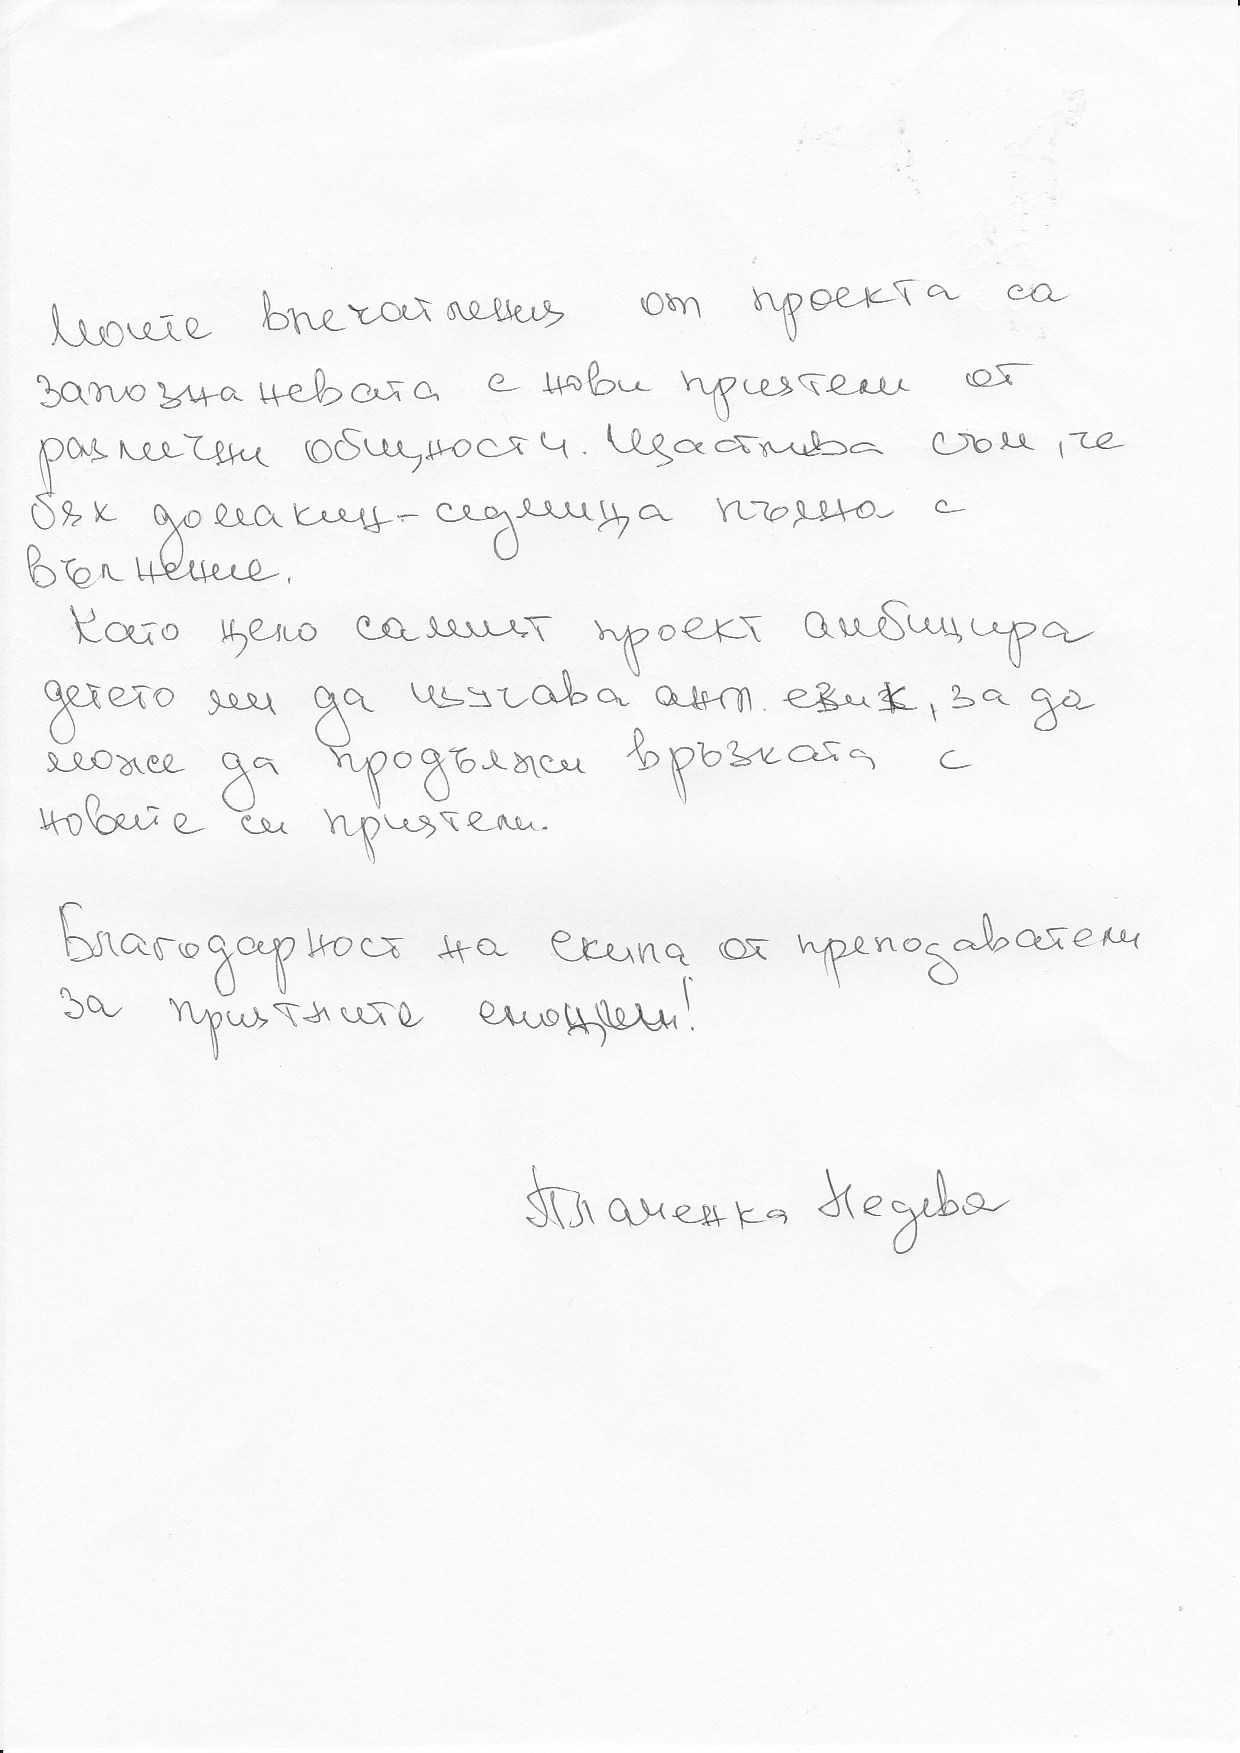 Моите впечатления от проекта са
запознаневата с нови приятели от
различни общности. Щастлива съм, че
бях домакин-седмица пълна с
вълнение.
Като цяло самият проект амбицира
детето ми да изучава анг. език, за да
може да продължи връзката с
новите си приятели.
Благодарност на екипа от преподаватели
за приятните емоции!
Пламенка Недева